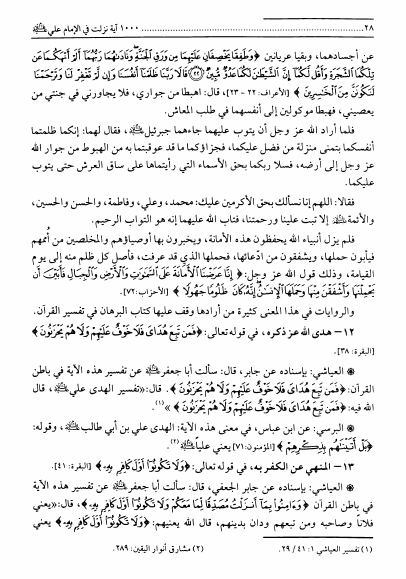 ٢٨ ........ ١٠٠٠ آية نزلت في الإمام علي ﷺ
عن أجسادهما، وبقيا عريانين ﴿وَطَفِقَا يَخْصِفَانِ عَلَيْهِمَا مِن وَرَقِ الْجَنَّةِ وَنَادَاهُمَا رَبُّهُمَا أَلَمْ أَنْهَكُمَا عَن
تِلْكُمَا الشَّجَرَةِ وَأَقُل لَّكُمَا إِنَّ الشَّيْطَانَ لَكُمَا عَدُوٌّ مُّبِينٌ (٢٢) قَالَا رَبَّنَا ظَلَمْنَا أَنفُسَنَا وَإِن لَّمْ تَغْفِرْ لَنَا وَتَرْحَمْنَا
لَنَكُونَنَّ مِنَ الْخَاسِرِينَ﴾ [الأعراف: ٢٢ - ٢٣]، قال: اهبطا من جواري، فلا يجاورني في جنتي من
يعصيني، فهبطا موكولين إلى أنفسهما في طلب المعاش.
فلما أراد الله عز وجل أن يتوب عليهما جاءهما جبرئيل، فقال لهما: إنكما ظلمتما
أنفسكما بتمني منزلة من فضل عليكما، فجزاؤكما ما قد عوقبتما به من الهبوط من جوار الله
عز وجل إلى أرضه، فسلا ربكما بحق الأسماء التي رأيتماها على ساق العرش حتى يتوب
عليكما.
فقالا: اللهم إنا نسألك بحق الأكرمين عليك: محمد، وعلي، وفاطمة، والحسن والحسين،
والأئمة إلا تبت علينا ورحمتنا، فتاب الله عليهما إنه هو التواب الرحيم.
فلم يزل أنبياء الله يحفظون هذه الأمانة، ويخبرون بها أوصياؤهم والمخلصين من أممهم
فيأبون حملها، ويشفقون من ادّعائها، فحملها الذي قد عرفت، فأصل كل ظلم منه إلى يوم
القيامة، وذلك قول الله عز وجل: ﴿إِنَّا عَرَضْنَا الْأَمَانَةَ عَلَى السَّمَاوَاتِ وَالْأَرْضِ وَالْجِبَالِ فَأَبَيْنَ أَن
يَحْمِلْنَهَا وَأَشْفَقْنَ مِنْهَا وَحَمَلَهَا الْإِنسَانُ إِنَّهُ كَانَ ظَلُومًا جَهُولًا﴾ [الأحزاب: ٧٢].
والروايات في هذا المعنى كثيرة من أرادها وقف عليها كتاب البرهان في تفسير القرآن.
١٢- هدى الله عز ذكره، في قوله تعالى: ﴿فَمَن تَبِعَ هُدَايَ فَلَا خَوْفٌ عَلَيْهِمْ وَلَا هُمْ يَحْزَنُونَ﴾
[البقرة: ٣٨].
العياشي: بإسناده عن جابر، قال: سألت أبا جعفر عن تفسير هذه الآية في باطن
القرآن: ﴿فَمَن تَبِعَ هُدَايَ فَلَا خَوْفٌ عَلَيْهِمْ وَلَا هُمْ يَحْزَنُونَ﴾. قال: «تفسير الهدى علي، قال
الله فيه: ﴿فَمَن تَبِعَ هُدَايَ فَلَا خَوْفٌ عَلَيْهِمْ وَلَا هُمْ يَحْزَنُونَ﴾»(١).
البرسي: عن ابن عباس، في معنى هذه الآية: الهدى علي بن أبي طالب، وقوله:
﴿بَلْ أَتَيْنَاهُم بِذِكْرِهِمْ﴾ [المؤمنون: ٧١] يعني علياً(٢).
١٣- المنهي عن الكفر به، في قوله تعالى: ﴿وَلَا تَكُونُوا أَوَّلَ كَافِرٍ بِهِ﴾ [البقرة: ٤١].
العياشي: بإسناده عن جابر الجعفي، قال: سألت أبا جعفر عن تفسير هذه الآية
في باطن القرآن ﴿وَآمِنُوا بِمَا أَنزَلْتُ مُصَدِّقًا لِّمَا مَعَكُمْ وَلَا تَكُونُوا أَوَّلَ كَافِرٍ بِهِ﴾، قال: «يعني
فلاناً وصاحبه ومن تبعهم ودان بدينهم، قال الله يعنيهم: ﴿وَلَا تَكُونُوا أَوَّلَ كَافِرٍ بِهِ﴾ يعني
(١) تفسير العياشي ١: ٤١ / ٢٩.
(٢) مشارق أنوار اليقين: ٢٨٩.